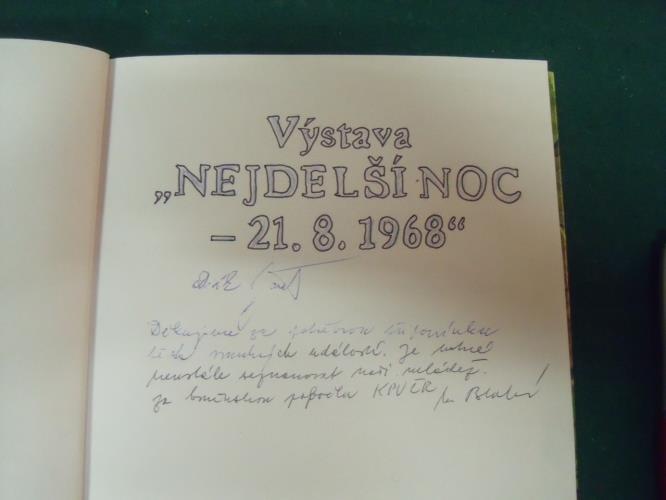 Výstava
„NEJDELŠÍ NOC
– 21. 8. 1968“
Děkujeme za připomínku
těch smutných událostí. Je nutné
neustále seznamovat naši mládež.
za pobočku KPV ČR